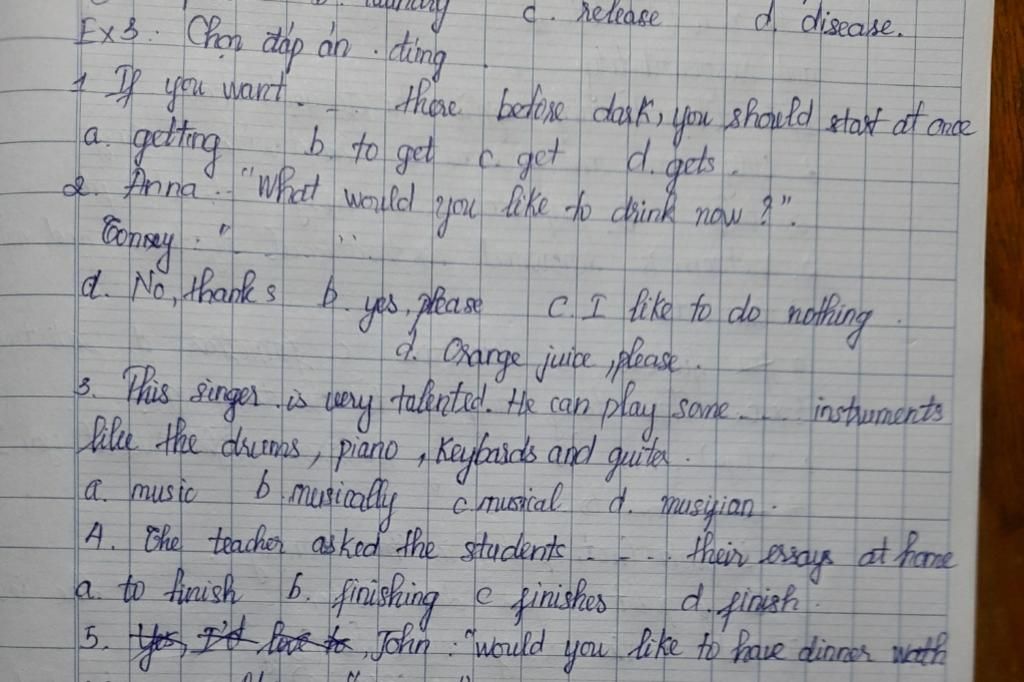 c. release d. disease.
Ex 3. Chọn đáp án đúng
1 If you want .... there before dark, you should start at once
a. getting b. to get c. get d. gets.
2. Anna: "What would you like to drink now?".
: "
a. No, thanks b. yes, please c. I like to do nothing.
d. Orange juice, please.
3. This singer is very talented. He can play some .... instruments
like the drums, piano, keyboards and guitar.
a. music b. musically c. musical d.
4. The teacher asked the students .... their essays at home
a. to finish b. finishing c finishes d. finish.
5. John: "would you like to have dinner with